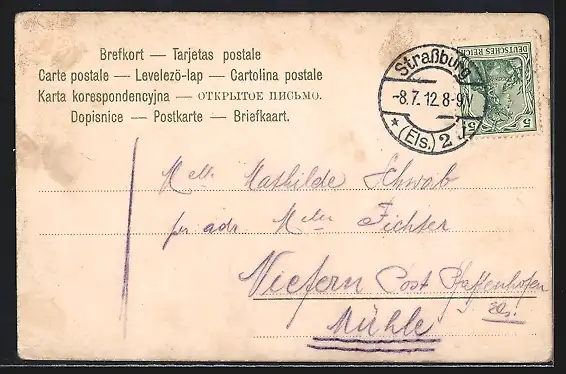 Brefkort — Tarjetas postale
Carte postale — Levelezö-lap — Cartolina postale
Karta korespondencyjna — ОТКРЫТОЕ ПИСЬМО.
Dopisnice — Postkarte — Briefkaart.
Straßburg
-8.7.12.8-9V
* (Els.) 2
DEUTSCHES REICH
5 5
Melle Mathilde Schwab
per adr. Meler Fichter
Niefern Post Pfaffenhofen
Els.
Mühle